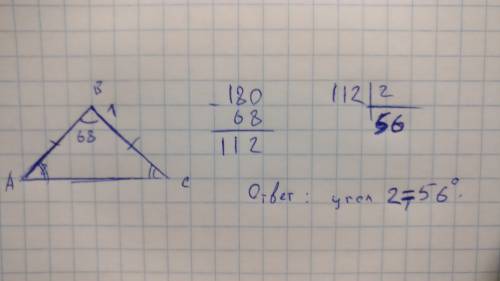 B
1
68
A
C
- 180
68
112
112 | 2
56
Ответ: угол 2 = 56°.